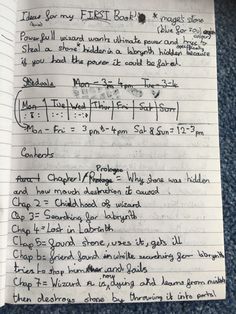 Ideas for my FIRST Book! * maget stone
(blue for you)
Powerfull wizard wants ultimate power and have to
Steal a stone hidden in a labrynth hidden because
if you had the power it could be fatal.
Schedule Mon - 3 - 4 pm Tue - 3 - 4
Mon Tue Wed Thur Fri Sat Sun
Mon - Fri = 3 pm - 4 pm Sat & Sun = 12-3 pm
Contents
Prologue
Chapter 1 / Prologue = Why stone was hidden
and how mouch destruction it caused
Chap 2 = Childhood of wizard
Cap 3 = Searching for labrynth
Chap 4 = Lost in Labrinth
Chap 5 = found stone, uses it, gets ill
Chap 6 = friend found in while searching for labrynth
tries to stop hum and fails
Chap 7 = Wizard is now dying and learns from mistake
then destroys stone by throwing it into portal